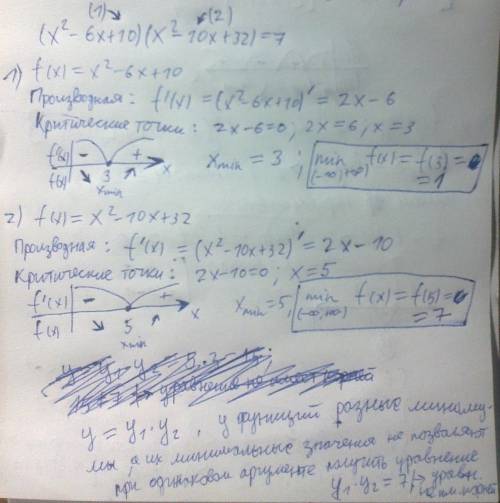 (1) (2)
(x²-6x+10)(x²-10x+32)=7
1) f(x)=x²-6x+10
Производная: f'(x)=(x²-6x+10)'=2x-6
Критические точки: 2x-6=0; 2x=6, x=3
f'(x) - + x
f(x) 3 xmin
xmin=3; min f(x)=f(3)=
(-∞;+∞) =1
2) f(x)=x²-10x+32
Производная: f'(x)=(x²-10x+32)'=2x-10
Критические точки: 2x-10=0; x=5
f'(x) - + x
f(x) 5 xmin
xmin=5, min f(x)=f(5)=
(-∞;+∞) =7
y=y₁·y₂, у функций разные миниму-
мы, а их минимальные значения не позволяют
при одинаковом аргументе получить уравнение
y₁·y₂=7 => уравн.
не им. корней